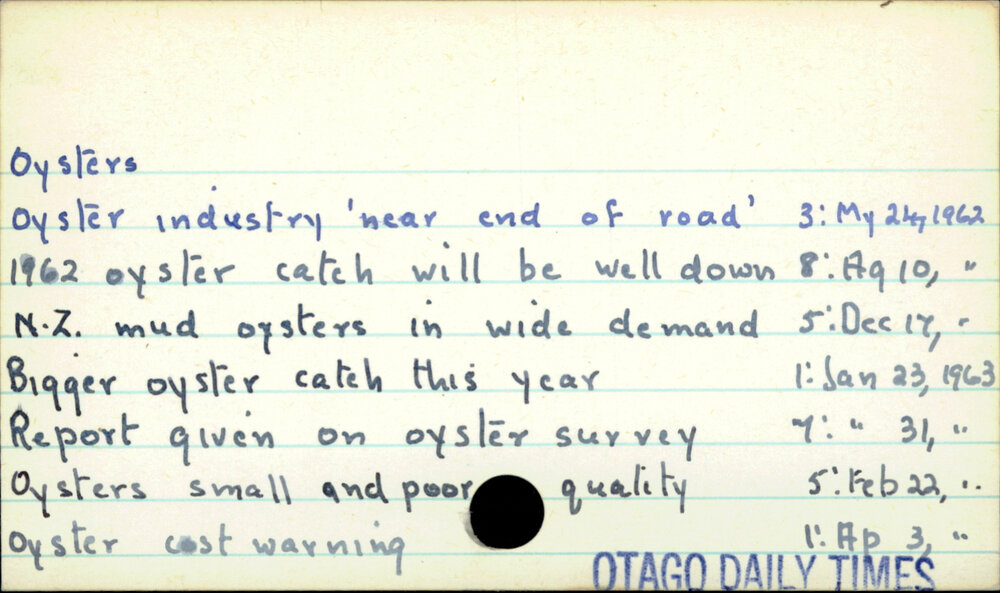 Oysters
Oyster industry 'near end of road' 3: My 24, 1962
1962 oyster catch will be well down 8: Ag 10, "
N.Z. mud oysters in wide demand 5: Dec 17, "
Bigger oyster catch this year 1: Jan 23, 1963
Report given on oyster survey 7: " 31, "
Oysters small and poor quality 5: Feb 22, "
Oyster cost warning 1: Ap 3, "
OTAGO DAILY TIMES